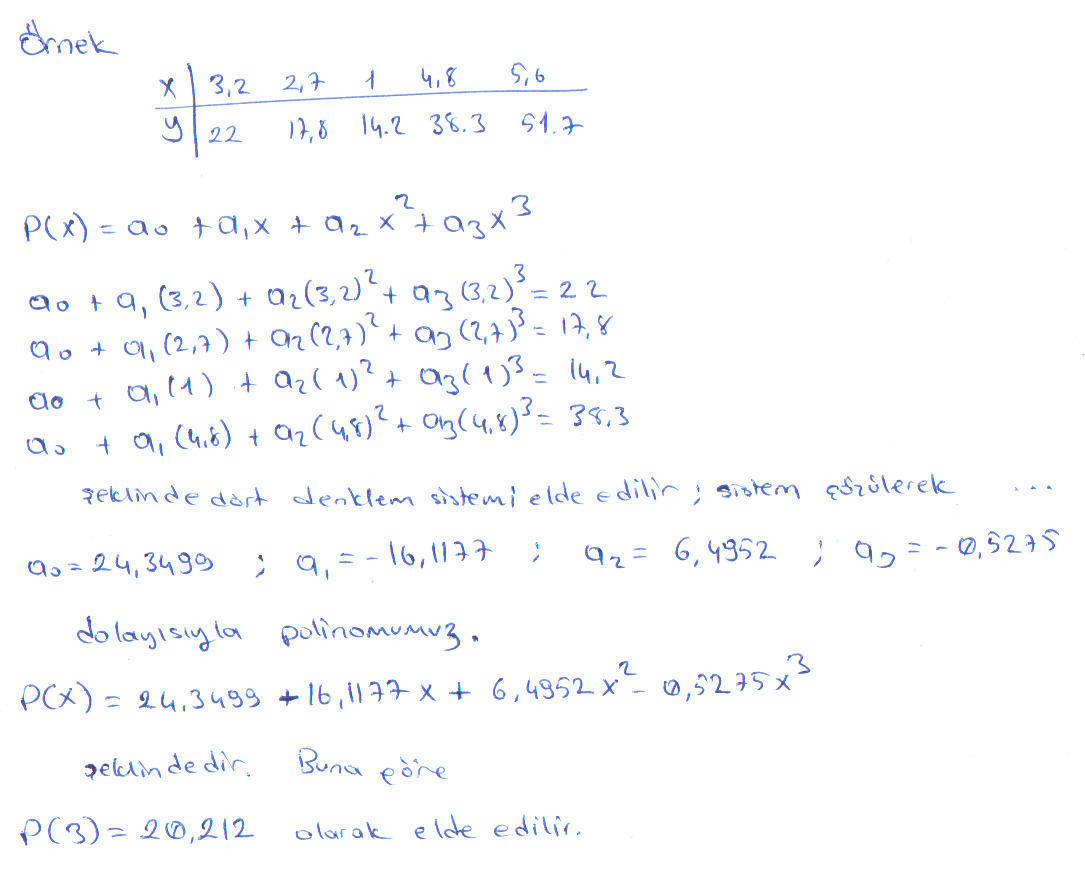 Örnek
x | 3,2 2,7 1 4,8 5,6
y | 22 17,8 14.2 38.3 51.7
P(x) = a₀ + a₁x + a₂x² + a₃x³
a₀ + a₁(3,2) + a₂(3,2)² + a₃(3,2)³ = 22
a₀ + a₁(2,7) + a₂(2,7)² + a₃(2,7)³ = 17,8
a₀ + a₁(1) + a₂(1)² + a₃(1)³ = 14,2
a₀ + a₁(4,8) + a₂(4,8)² + a₃(4,8)³ = 38,3
şeklinde dört denklem sistemi elde edilir; sistem çözülerek ...
a₀ = 24,3499 ; a₁ = -16,1177 ; a₂ = 6,4952 ; a₃ = -0,5275
dolayısıyla polinomumuz.
P(x) = 24,3499 + 16,1177x + 6,4952x² - 0,5275x³
şeklindedir. Buna göre
P(3) = 20,212 olarak elde edilir.